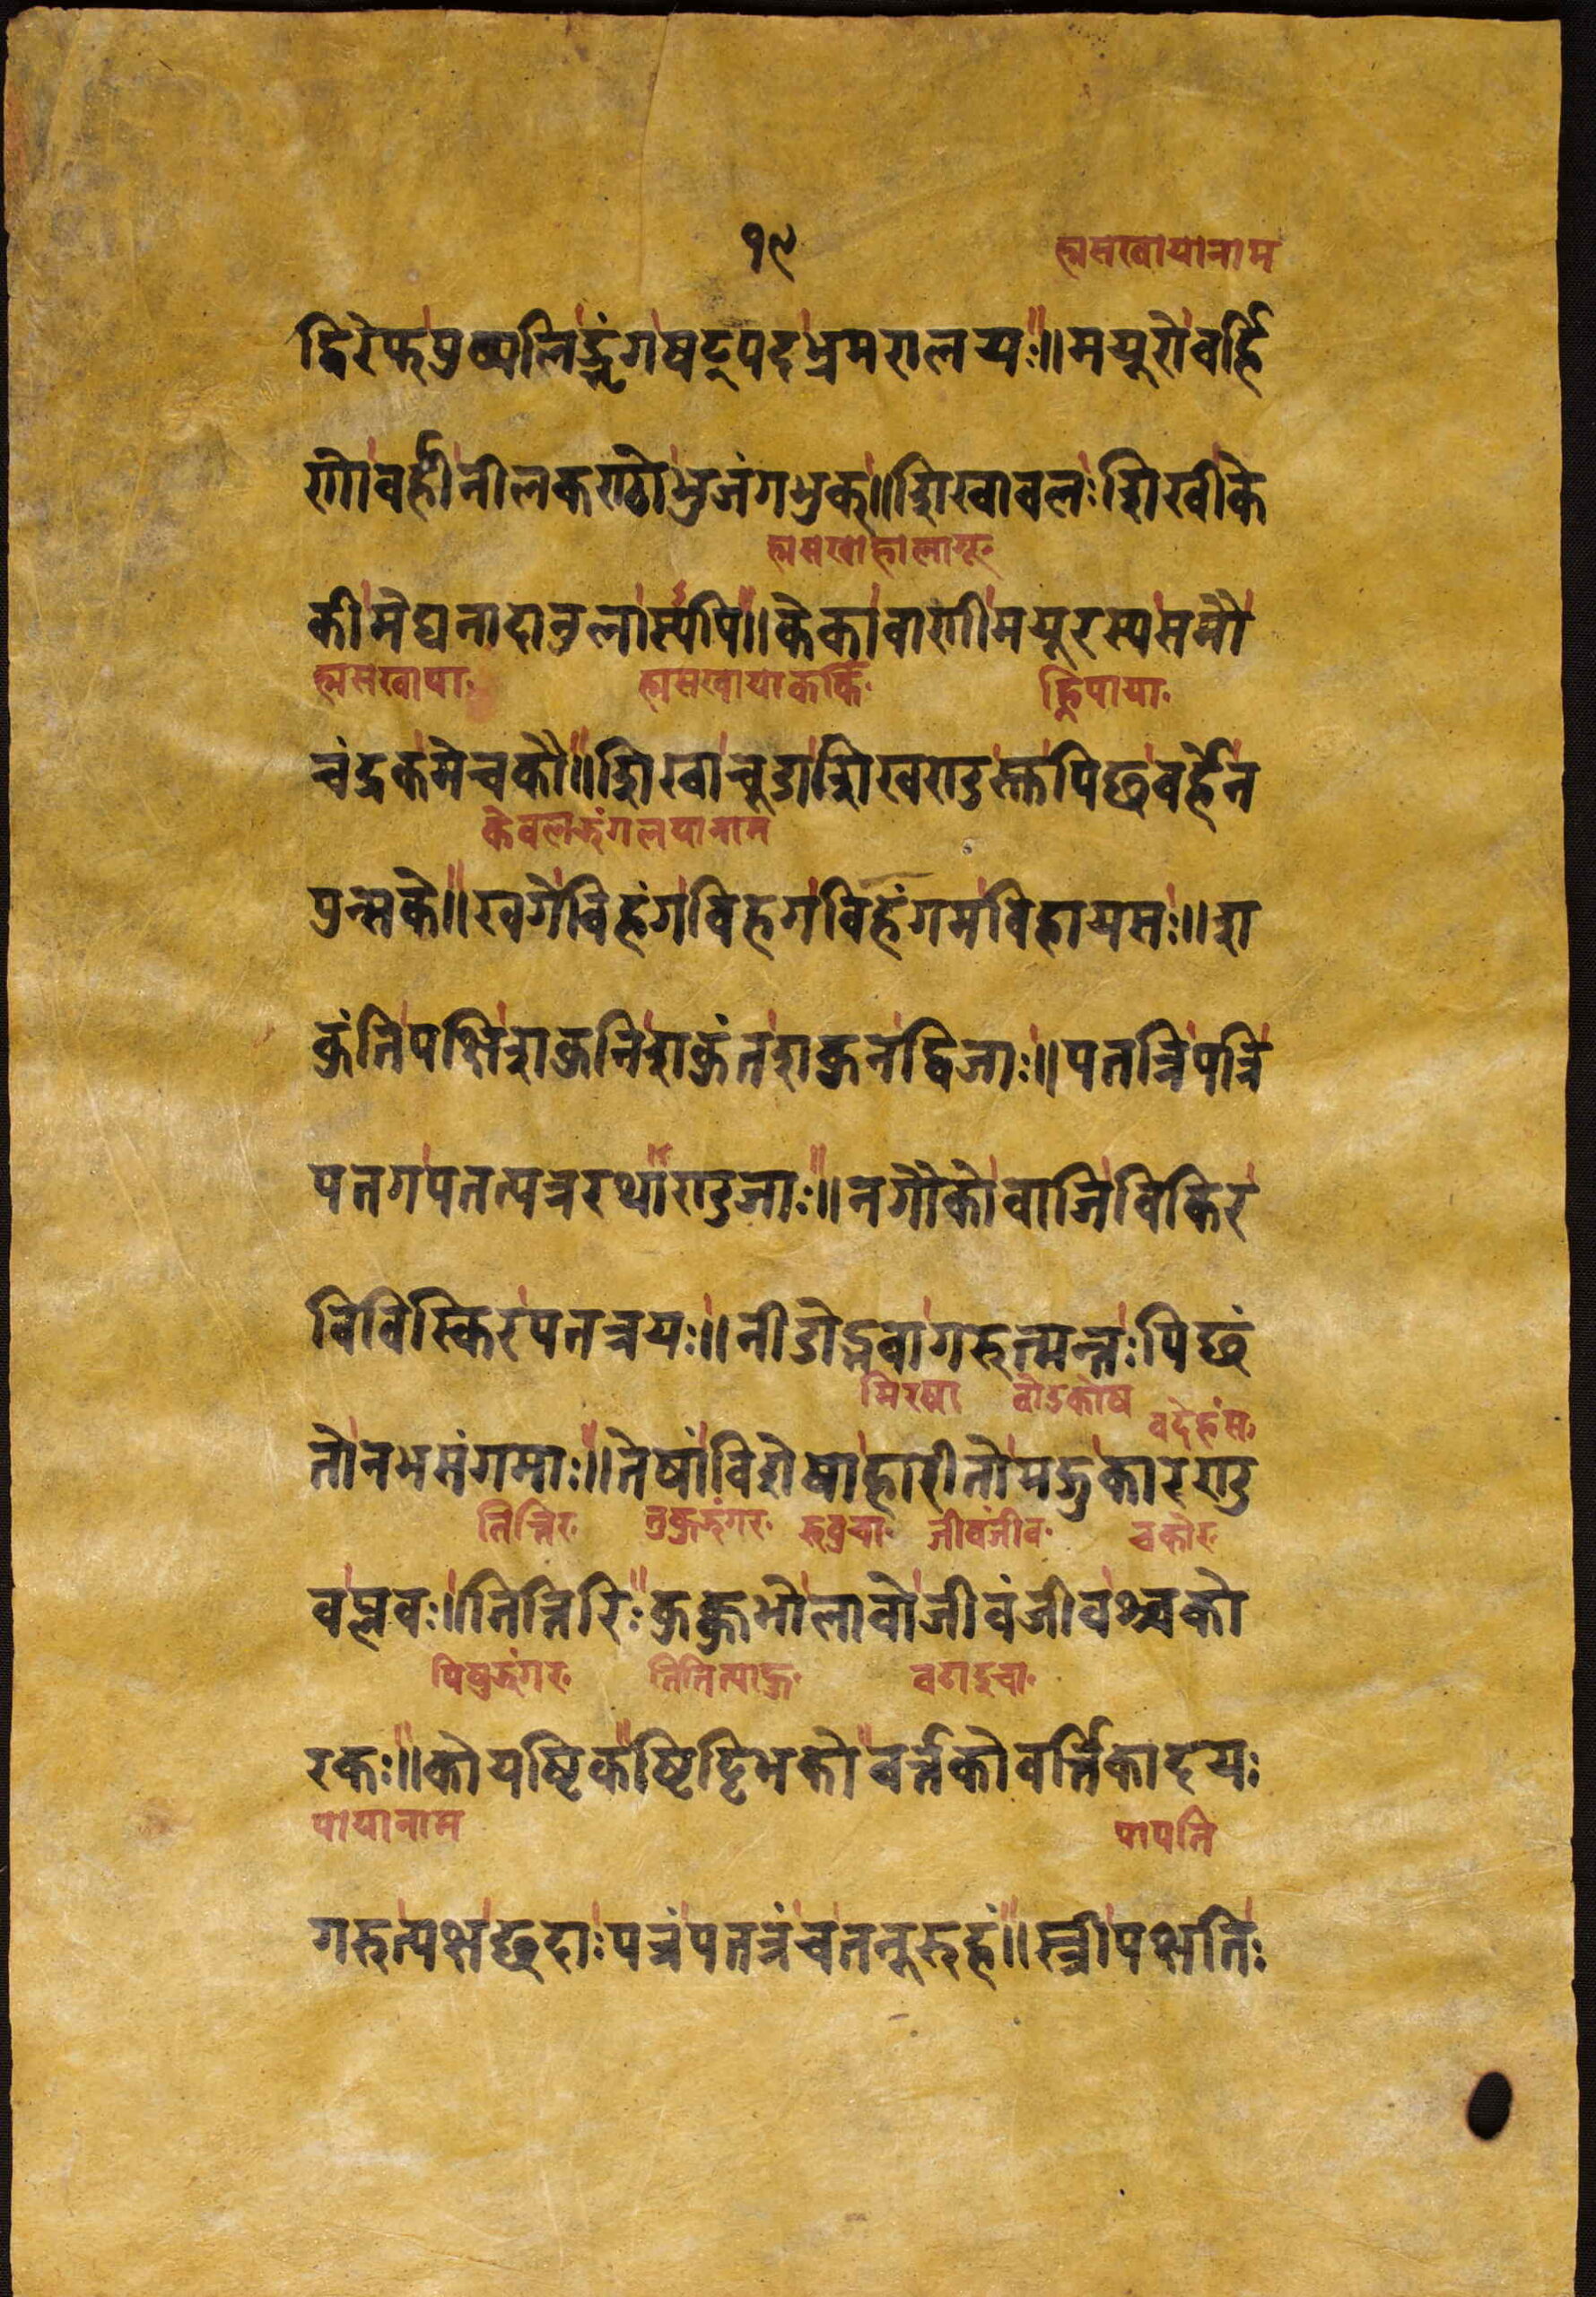 १९
ह्मसखायानाम
द्विरेफपुष्पलिङ्भृंगषट्पदभ्रमरालयः॥मयूरोवर्हि
णोवर्हीनीलकण्ठोभुजंगभुक्॥शिखावलःशिखीके
ह्मसखाहालायू॰
कीमेघनादानुलास्यपि॥केकावाणीमयूरस्यसमौ
ह्मसखाया॰
चंद्रकमेचकौ॥शिखाचूडाशिखण्डस्तुपिछवर्हेन
केवलझंगलयानाम
पुन्सके॥खगेविहंगविहगविहंगमविहायसः॥श
कुंतिपक्षिशकुनिशकुंतशकुनद्विजाः॥पतत्रिपत्रि
पतगपतत्पत्ररथाण्डजाः॥नगौकोवाजिविकिर
विविस्किरपतत्रयः॥नीडोद्भवागरुत्मन्तःपिछं
तोनभसंगमाः॥तेषांविशेषाहारीतोमद्गुकारण्ड
तित्तिर॰ जीवंजीव॰ चकोर॰
वप्लवः॥तित्तिरिःकुक्कुभोलावोजीवंजीवश्चको
रकः॥कोयष्टिकष्टिट्टिभकोवर्त्तकोवर्त्तिकादयः
पायानाम पापति
गरुत्पक्षछदाःपत्रंपतत्रंचतनूरुहं॥स्त्रीपक्षतिः